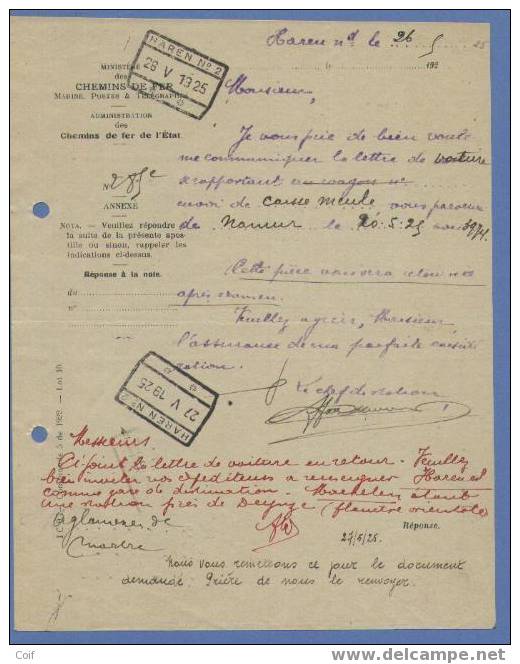 Haren nd le 26 5 25
HAREN N° 2
28 V 1925
MINISTÈRE
des
CHEMINS DE FER
MARINE, POSTES & TÉLÉGRAPHES
ADMINISTRATION
des
Chemins de fer de l'État
192
Monsieur,
Je vous prie de bien vouloir
me communiquer la lettre de voiture
se rapportant au wagon n°
N° 285c
ANNEXE
envoi de caisse meule vous parvenu
de Namur le 20-5-25 sous 3974.
NOTA. — Veuillez répondre
à la suite de la présente apos-
tille ou sinon, rappeler les
indications ci-dessus.
Réponse à la note.
du
n°
Cette pièce vous sera
après examen.
Veuillez agréer, Monsieur,
l'assurance de ma parfaite considé
ration.
Le chef de station
HAREN N° 2
27 V 1925
Messieurs
Ci joint la lettre de voiture en retour. Veuillez
bien inviter vos expéditeurs à renseigner Haren nd
comme gare de destination. Machelen étant
une station près de Deynze (flandre orientale)
Réponse.
27/5/25.
Nous vous remettons ce jour le document
demandé. Prière de nous le renvoyer.
Coif
www.delcampe.net